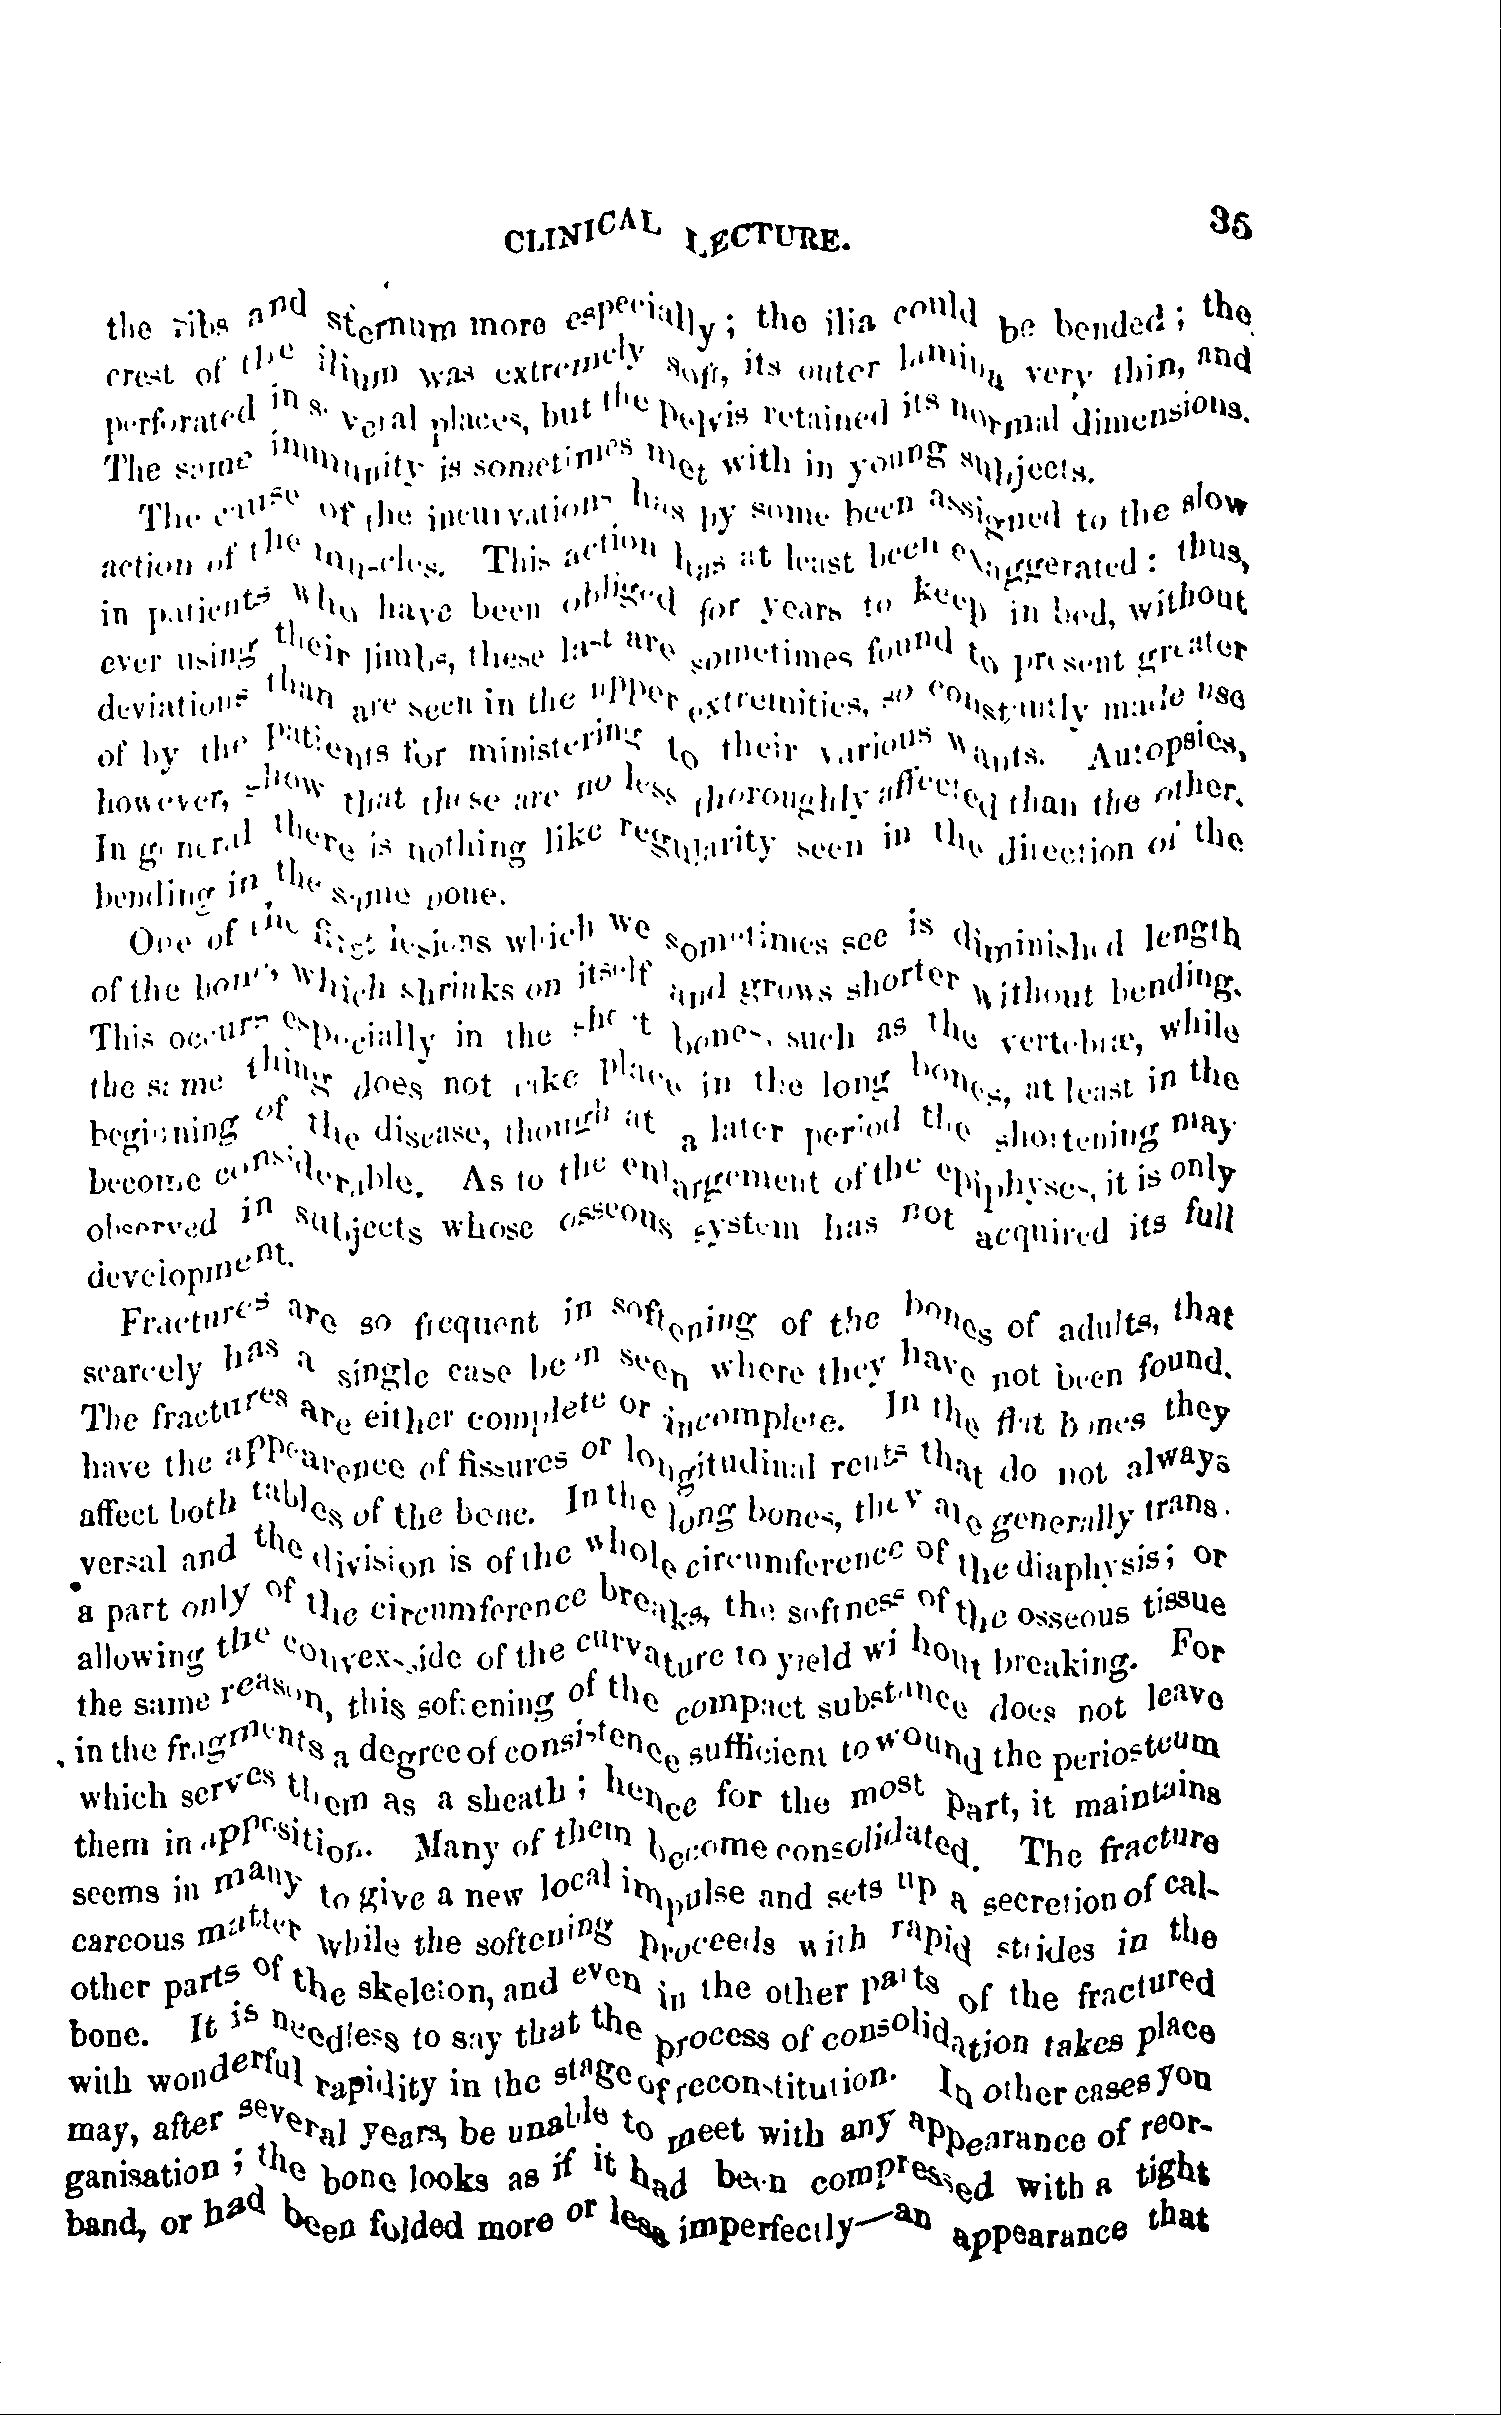 CLINICAL LECTURE. 35
the ribs and sternum more especially; the ilia could be bended; the
crest of the ilium was extremely soft, its outer lamina very thin, and
perforated in several places, but the pelvis retained its normal dimensions.
The same immunity is sometimes met with in young subjects.
The cause of the incurvations has by some been assigned to the slow
action of the muscles. This action has at least been exaggerated: thus,
in patients who have been obliged for years to keep in bed, without
ever using their limbs, these last are sometimes found to present greater
deviations than are seen in the upper extremities, so constantly made use
of by the patients for ministering to their various wants. Autopsies,
however, show that these are no less thoroughly affected than the other.
In general there is nothing like regularity seen in the direction of the
bending in the same bone.
One of the first lesions which we sometimes see is diminished length
of the bones which shrinks on itself and grows shorter without bending.
This occurs especially in the short bones, such as the vertebræ, while
the same thing does not take place in the long bones, at least in the
beginning of the disease, though at a later period the shortening may
become considerable. As to the enlargement of the epiphyses, it is only
observed in subjects whose osseous system has not acquired its full
development.
Fractures are so frequent in softening of the bones of adults, that
scarcely has a single case been seen where they have not been found.
The fractures are either complete or incomplete. In the flat bones they
have the appearence of fissures or longitudinal rents that do not always
affect both tables of the bone. In the long bones, they are generally trans-
versal and the division is of the whole circumference of the diaphysis; or
a part only of the circumference breaks, the softness of the osseous tissue
allowing the convex side of the curvature to yield without breaking. For
the same reason, this softening of the compact substance does not leave
in the fragments a degree of consistence sufficient to wound the periosteum
which serves them as a sheath; hence for the most part, it maintains
them in apposition. Many of them become consolidated. The fracture
seems in many to give a new local impulse and sets up a secretion of cal-
careous matter while the softening proceeds with rapid strides in the
other parts of the skeleton, and even in the other parts of the fractured
bone. It is needless to say that the process of consolidation takes place
with wonderful rapidity in the stage of reconstitution. In other cases you
may, after several years, be unable to meet with any appearance of reor-
ganisation; the bone looks as if it had been compressed with a tight
band, or had been folded more or less imperfectly—an appearance that